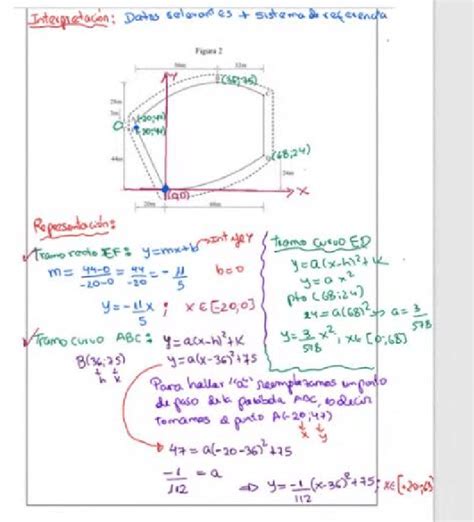 Interpretación: Datos relevantes + sistema de referencia
Figura 2
36m 32m
y
(36;75)
28m
3m
(-20;47)
(-20;44)
44m
(68;24)
24m
(0,0)
x
20m 68m
Representación:
✓ Tramo recto EF: y=mx+b → Int eje Y
m = 44-0/-20-0 = 44/-20 = -11/5 b=0
y=-11/5 x ; x∈[-20;0]
Tramo curvo ED
y=a(x-h)²+k
y=a x²
pto (68;24)
24=a(68)² ⇒ a=3/578
y=3/578 x², x∈[0;68]
✓ Tramo curvo ABC: y=a(x-h)²+k
B(36;75) y=a(x-36)²+75
h k
Para hallar "a" reemplazamos un punto
de paso de la parábola ABC, es decir
tomamos el punto A(-20;47)
x y
47 = a(-20-36)²+75
-1/112 = a
⇒ y=-1/112(x-36)²+75; x∈[-20;68]